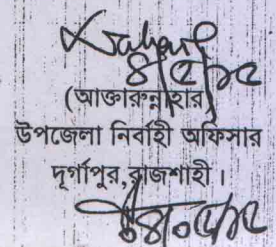 ৪/৫/১৫
(আক্তারুন্নাহার)
উপজেলা নির্বাহী অফিসার
দূর্গাপুর,রাজশাহী।